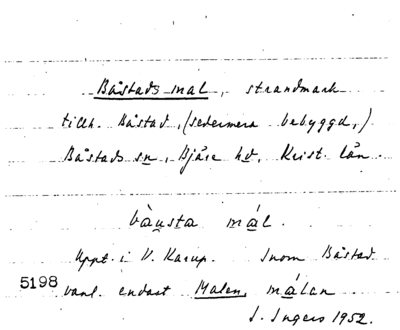 Båstads mal, strandmark
tillh. Båstad, (sedermera bebyggd,)
Båstads sn, Bjäre hd, Krist. län.
bàusta mál.
Uppt. i V. Karup. Inom Båstad
5198 vanl. endast Malen, málan
I. Ingers 1952.